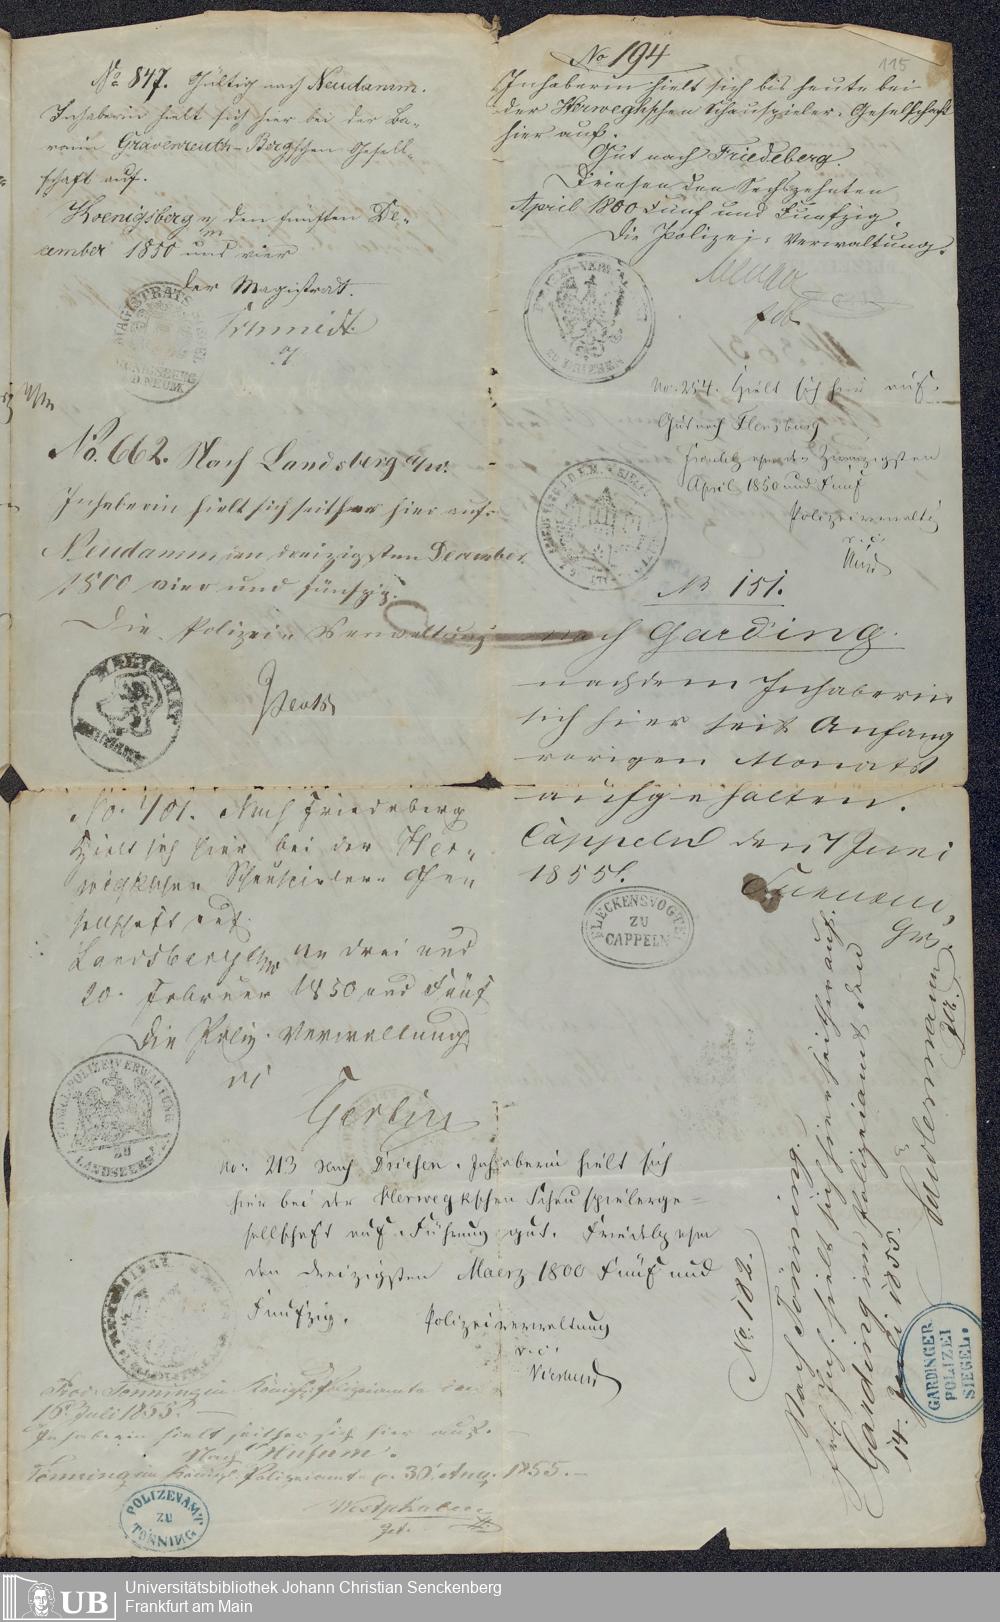 No 847. Gültig nach Neudamm.
Inhaberin hielt sich hier bei der Ba-
ronin Gravenreuth-Bergschen Gesell-
schaft auf.
Koenigsberg den fünften De-
cember 1850 und vier
Der Magistrat.
Schmidt
MAGISTRATS SIEGEL
KÖNIGSBERG
I.D. NEUM.
No. 662. Nach Landsberg a/w.
Inhaberin hielt sich seither hier auf.
Neudamm, den dreizigsten December
1800 vier und fünfzig.
Die Polizei Verwaltung
MAGISTRAT
No. 101. Nach Friedeberg
Hielt sich hier bei der Her-
wegkschen Schauspieler Ge
sellschaft auf.
Landsberg a/W den drei und
20. Februar 1850 und Fünf
Die Poliz. Verwaltung
Gerlin
POLIZEIVERWALTUNG
ZU
LANDSBERG
No: 213 Nach Driesen. Inhaberin hielt sich
hier bei der Herwegkschen Schauspielerge-
sellschaft auf. Führung gut. Friedeberg
den dreizigsten Maerz 1800 Fünf und
Fünfzig. Polizeiverwaltung
v.c.
Prov. Tönning im Königl. Polizeiamte den
16. Juli 1855.
Inhaberin hielt seither sich hier auf.
Nach Husum.
Tönning im Königl. Polizeiamte d. 30. Aug. 1855.
Westphalen
POLIZEYAMT
ZU
TÖNNING
No 194
115
Inhaberin hielt sich bis heute bei
der Herwegkschen Schauspieler-Gesellschaft
hier auf.
Gut nach Friedeberg.
Driesen den Sechszehnten
April 1800 Fünf und Fünfzig.
Die Polizei-Verwaltung.
POLIZEI-VERWALTUNG
ZU DRIESEN
No. 254. Hielt sich hier auf.
Gut nach Flensburg
Friedeberg den Zwanzigsten
April 1850 und Fünf
Polizeiverwaltg
v.c.
No 151.
nach Garding.
nachdem Inhaberin
sich hier seit Anfang
vorigen Monats
aufgehalten.
Cappeln den 7 Juni
1855.
FLECKENSVOGTEI
ZU
CAPPELN
No. 182.
Nach Tönning.
Inh. hielt sich hier seither auf.
Garding im Polizeiamt den
14. Juli 1855.
Sudermann
GARDINGER
POLIZEI
SIEGEL.
UB
Universitätsbibliothek Johann Christian Senckenberg
Frankfurt am Main